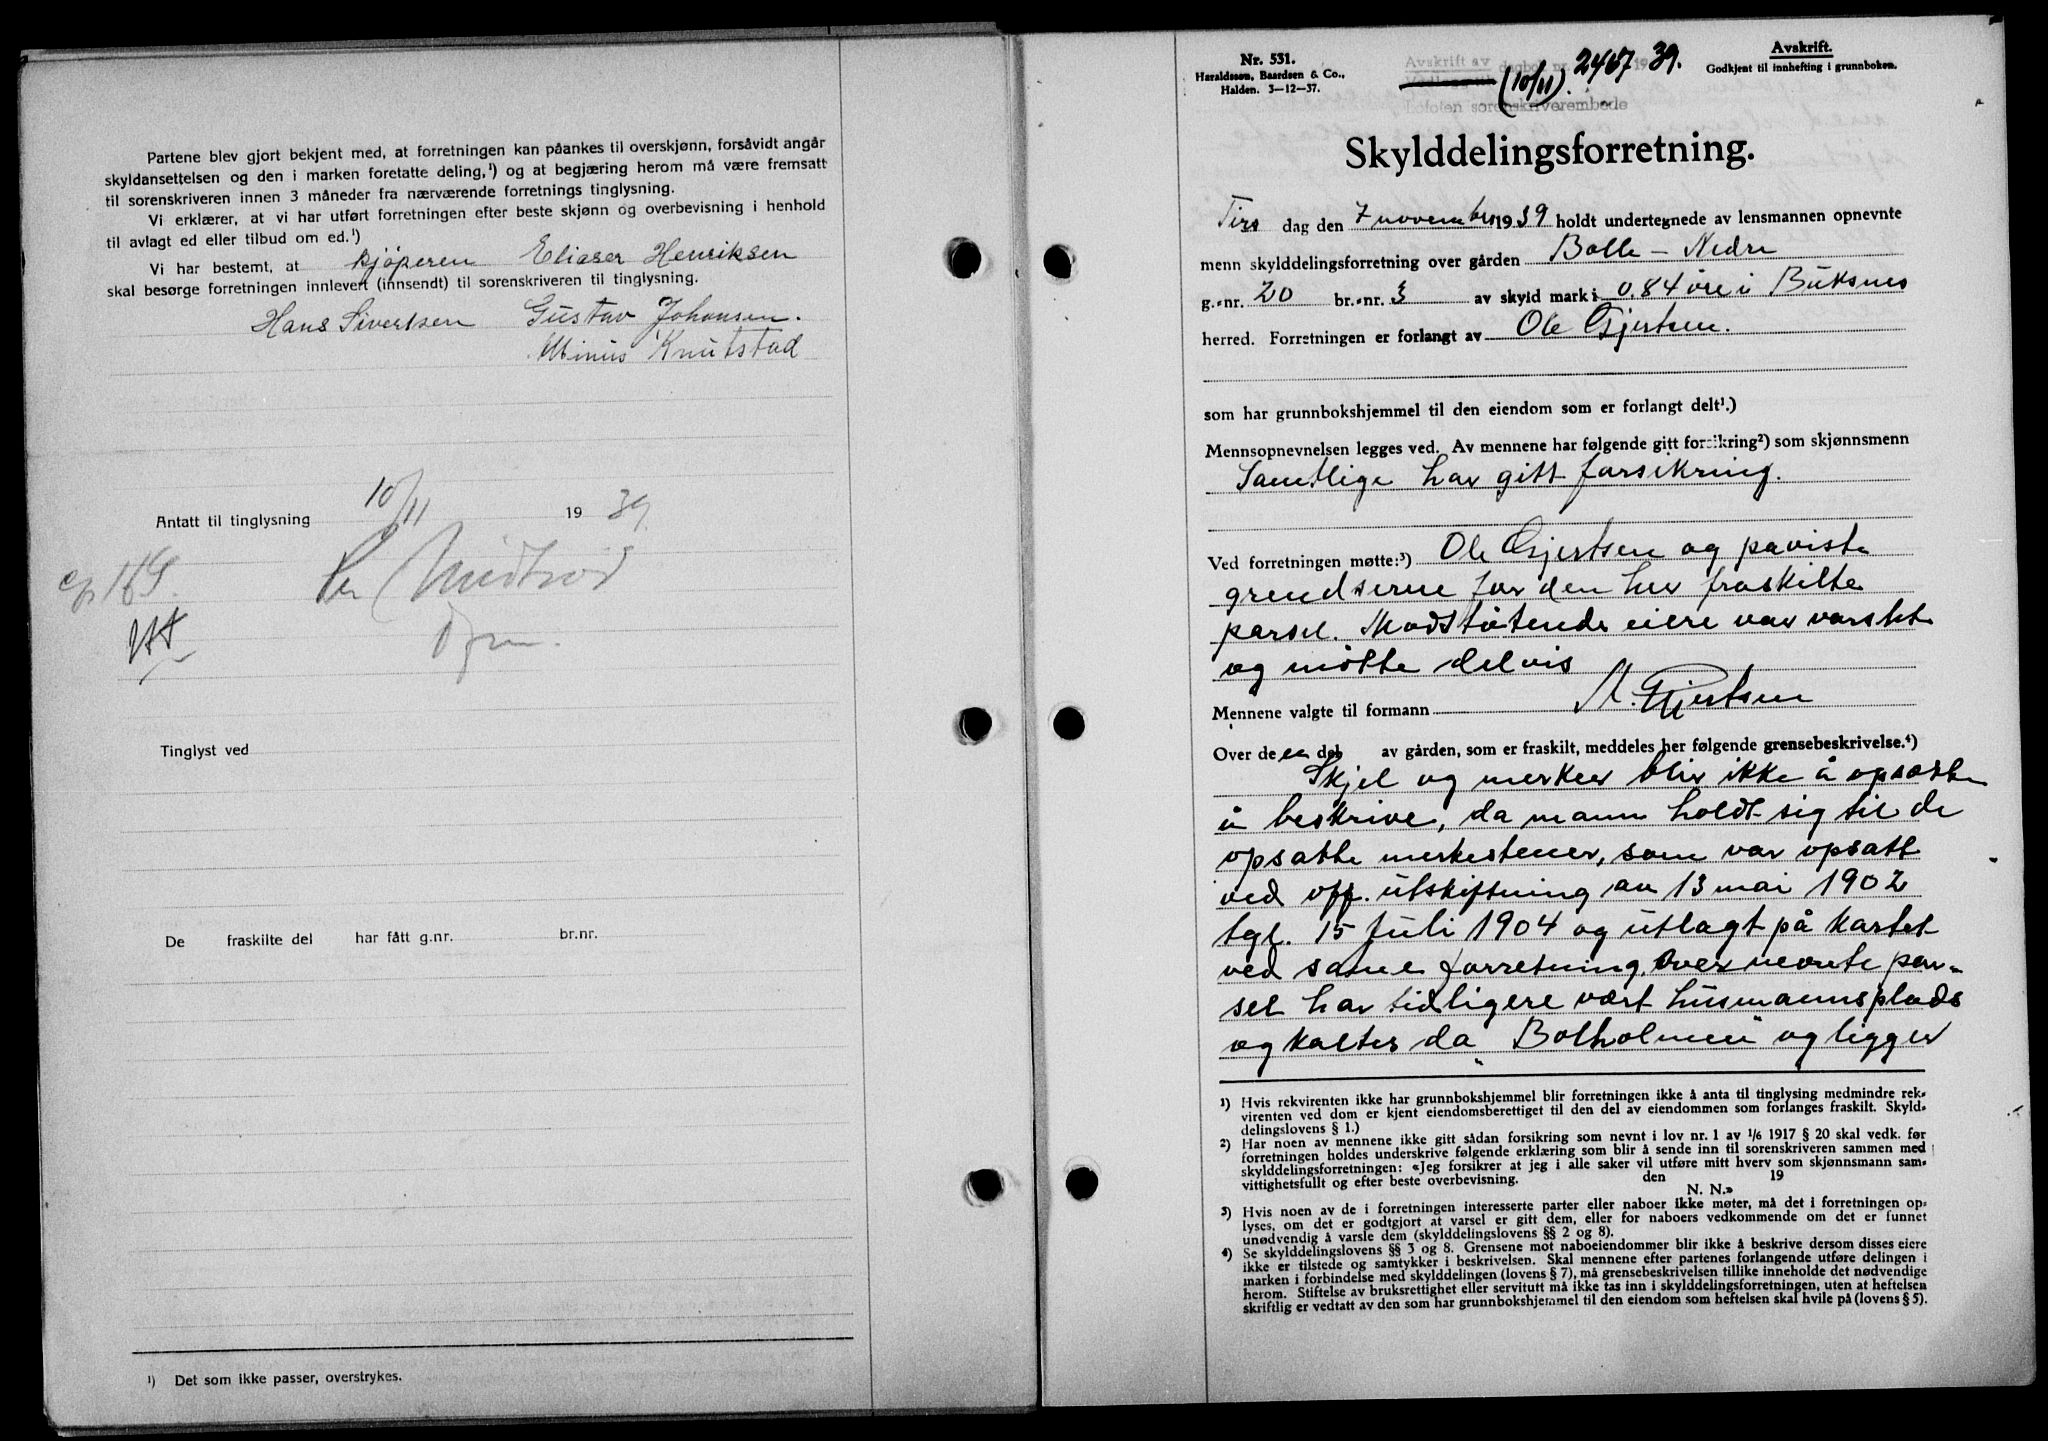 Partene blev gjort bekjent med, at forretningen kan påankes til overskjønn, forsåvidt angår
skyldansettelsen og den i marken foretatte deling,¹) og at begjæring herom må være fremsatt
til sorenskriveren innen 3 måneder fra nærværende forretnings tinglysning.
Vi erklærer, at vi har utført forretningen efter beste skjønn og overbevisning i henhold
til avlagt ed eller tilbud om ed.¹)
Vi har bestemt, at kjøperen Eliaser Henriksen
skal besørge forretningen innlevert (innsendt) til sorenskriveren til tinglysning.
Hans Sivertsen Gustav Johansen.
Minus Knutstad
Antatt til tinglysning 10/11 1939.
Tinglyst ved
De fraskilte del har fått g.nr. br.nr.
¹) Det som ikke passer, overstrykes.
Nr. 531.
Haraldssen, Baardsen & Co.,
Halden. 3-12-37.
Avskrift av dagbok nr. 2467 19 39.
(10/11).
Lofoten sorenskriverembede
Avskrift.
Godkjent til innhefting i grunnboken.
Skylddelingsforretning.
Tirsdag den 7 november 1939 holdt undertegnede av lensmannen opnevnte
menn skylddelingsforretning over gården Bolle - Nedre
g.-nr. 20 br.-nr. 3 av skyld mark 0,84 øre i Buksnes
herred. Forretningen er forlangt av Ole Gjertsen.
som har grunnbokshjemmel til den eiendom som er forlangt delt¹.)
Mennsopnevnelsen legges ved. Av mennene har følgende gitt forsikring²) som skjønnsmenn
Samtlige har gitt forsikring.
Ved forretningen møtte:³) Ole Gjertsen og paviste
grendserne for den her fraskilte
parsel. Modstøtende eiere var varslet
og møtte delvis
Mennene valgte til formann M. Gjertsen
Over de en del av gården, som er fraskilt, meddeles her følgende grensebeskrivelse.⁴)
Skjel og merker blir ikke å opsætte
å beskrive, da mann holdt sig til de
opsatte merkestener, som var opsatt
ved off. utskiftning av 13 mai 1902
tgl. 15 Juli 1904 og utlagt på kartet
ved same forretning. Over nevnte par-
sel har tidligere vært husmannsplads
og kaltes da "Bolholmen" og ligger
¹) Hvis rekvirenten ikke har grunnbokshjemmel blir forretningen ikke å anta til tinglysing medmindre rek-
virenten ved dom er kjent eiendomsberettiget til den del av eiendommen som forlanges fraskilt. Skyld-
delingslovens § 1.)
²) Har noen av mennene ikke gitt sådan forsikring som nevnt i lov nr. 1 av 1/6 1917 § 20 skal vedk. før
forretningen holdes underskrive følgende erklæring som blir å sende inn til sorenskriveren sammen med
skylddelingsforretningen: «Jeg forsikrer at jeg i alle saker vil utføre mitt hverv som skjønnsmann sam-
vittighetsfullt og efter beste overbevisning. den 19
N. N.»
³) Hvis noen av de i forretningen interesserte parter eller naboer ikke møter, må det i forretningen op-
lyses, om det er godtgjort at varsel er gitt dem, eller for naboers vedkommende om det er funnet
unødvendig å varsle dem (skylddelingslovens §§ 2 og 8).
⁴) Se skylddelingslovens §§ 3 og 8. Grensene mot naboeiendommer blir ikke å beskrive dersom disses eiere
ikke er tilstede og samtykker i beskrivelsen. Skal mennene efter partenes forlangende utføre delingen i
marken i forbindelse med skylddelingen (lovens § 7), må grensebeskrivelsen tillike inneholde det nødvendige
herom. Stiftelse av bruksrettighet eller servitutt må ikke tas inn i skylddelingsforretningen, uten at heftelsen
skriftlig er vedtatt av den som har grunnbokshjemmel til den eiendom som heftelsen skal hvile på (lovens § 5).